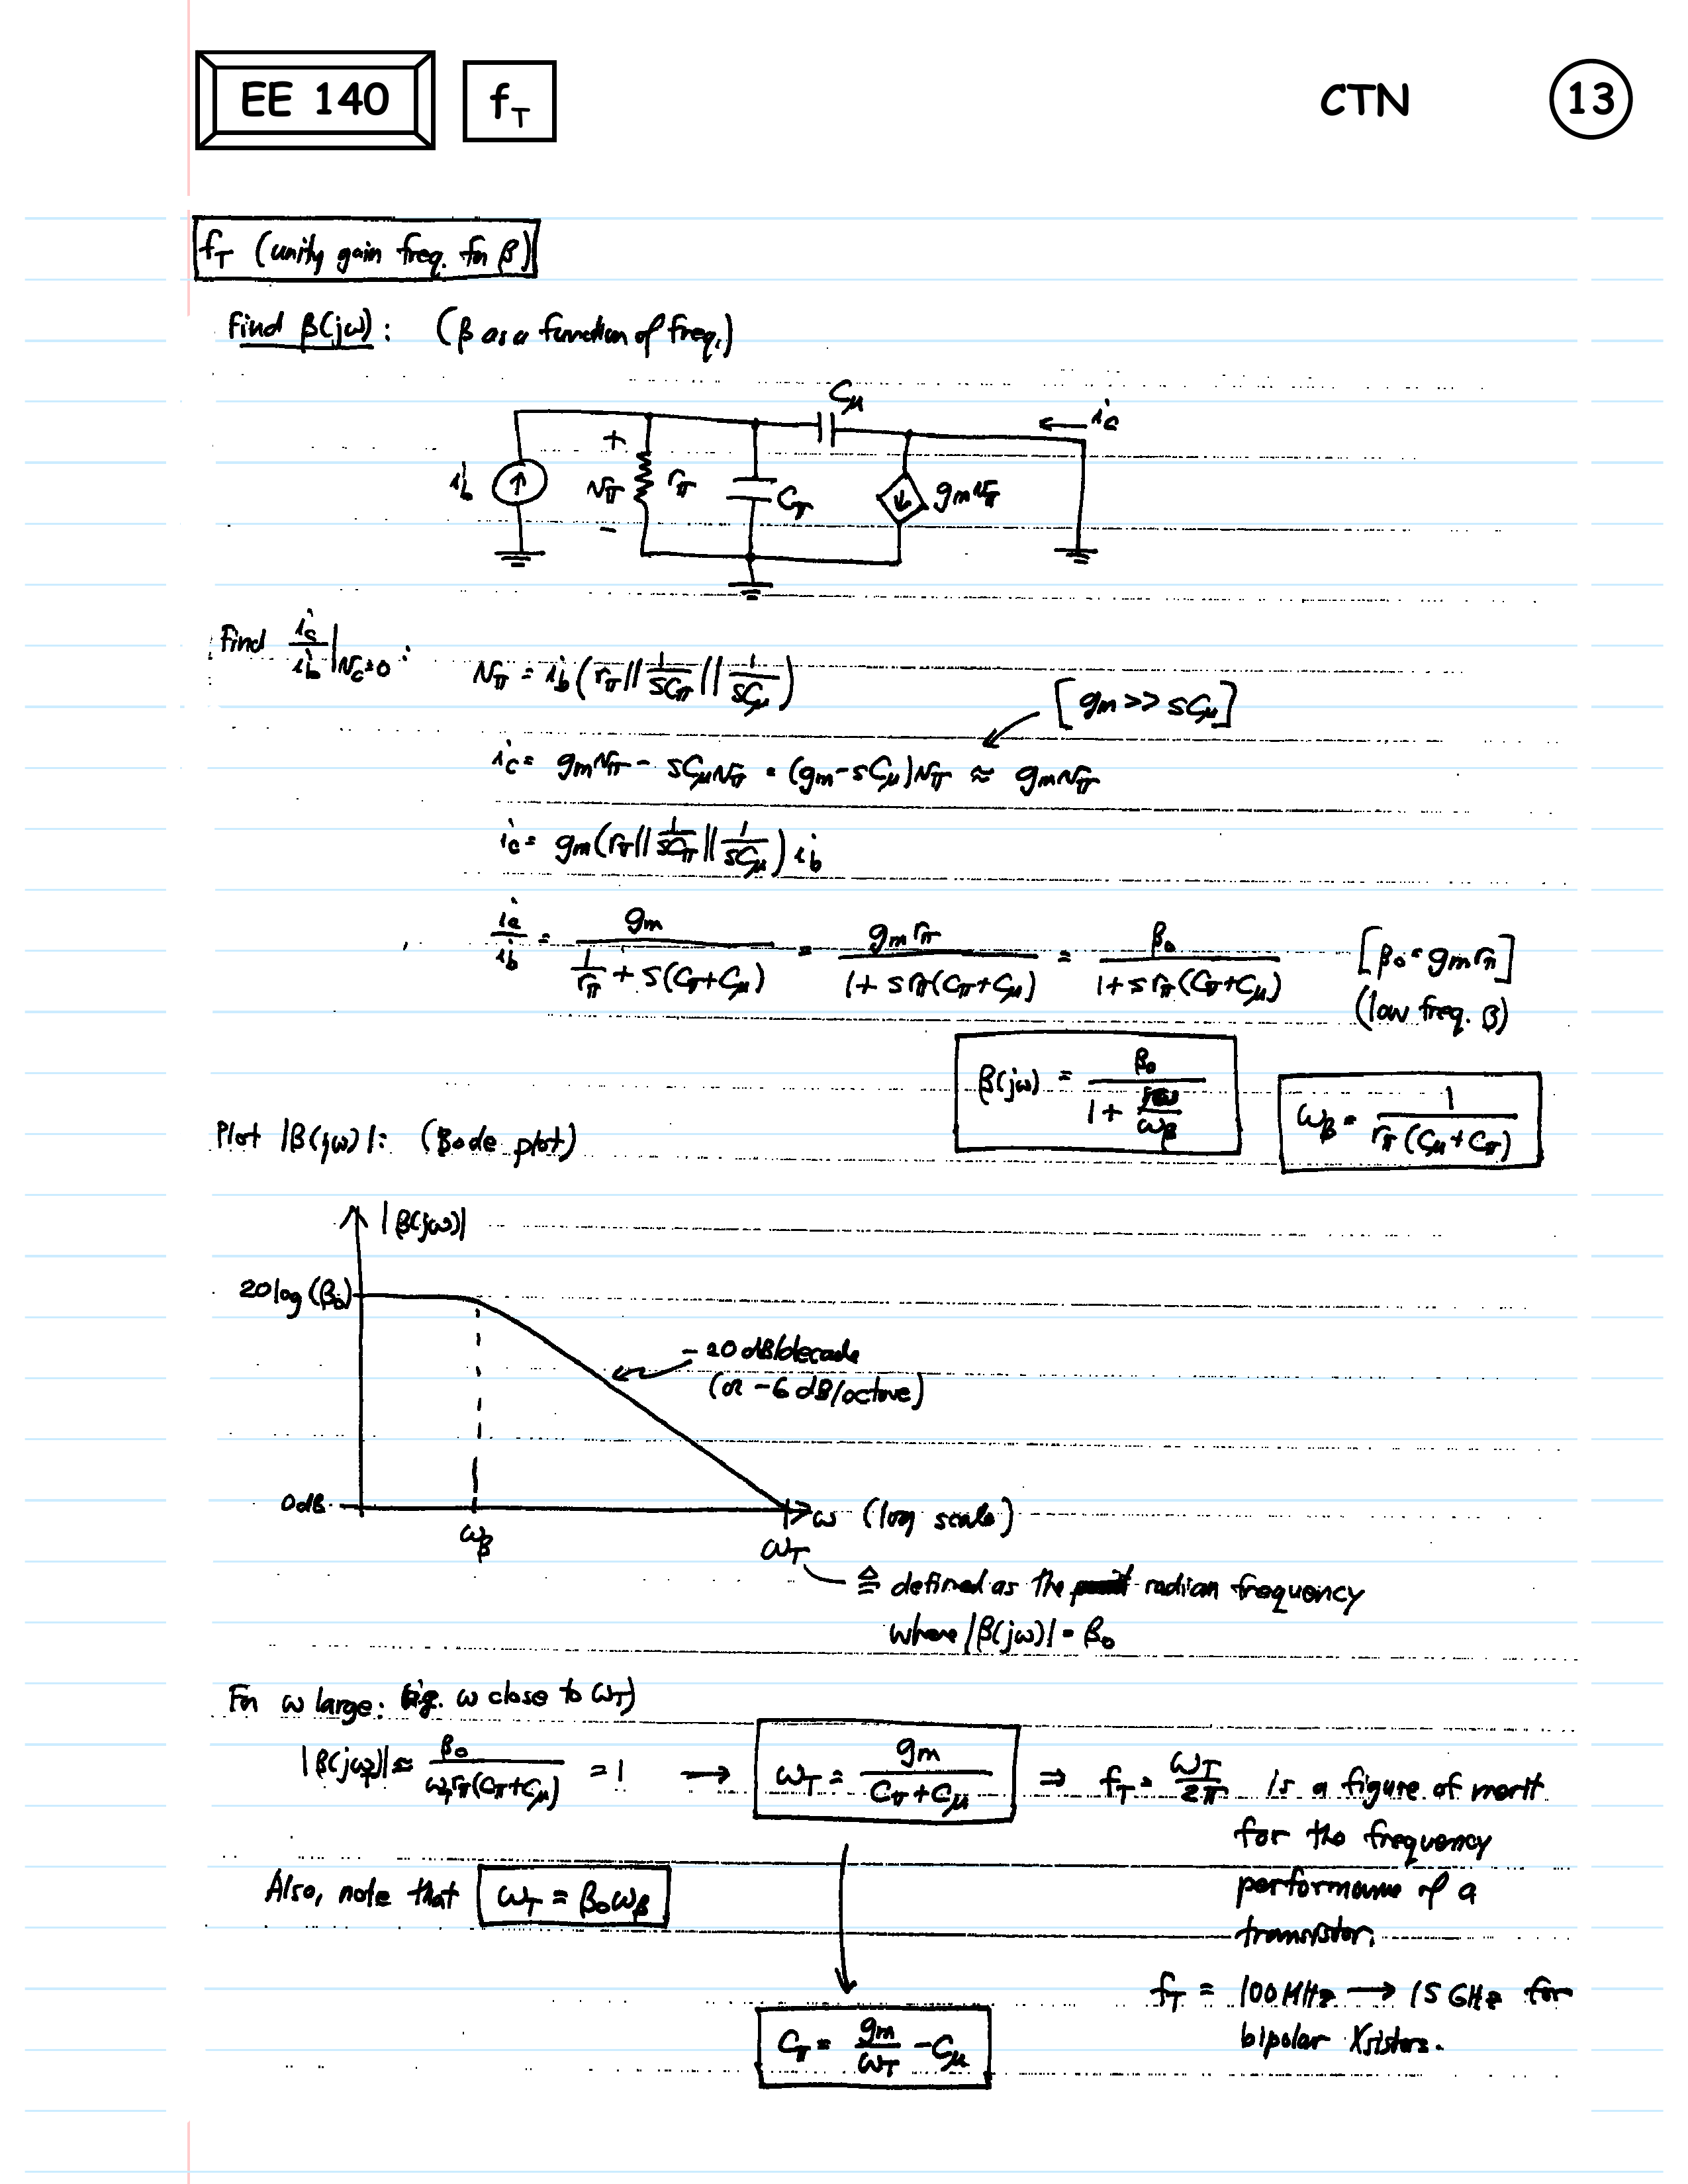 EE 140
f_T
CTN
13
f_T (unity gain freq. for β)
Find β(jω): (β as a function of freq.)
C_μ
i_c
+
i_b
v_π
r_π
C_π
g_m v_π
−
Find i_c/i_b |v_c=0 : v_π = i_b (r_π || 1/sC_π || 1/sC_μ)
[g_m >> sC_μ]
i_c = g_m v_π − sC_μ v_π = (g_m − sC_μ) v_π ≈ g_m v_π
i_c = g_m (r_π || 1/sC_π || 1/sC_μ) i_b
i_c/i_b = g_m / (1/r_π + s(C_π + C_μ)) = g_m r_π / (1 + s r_π (C_π + C_μ)) = β_0 / (1 + s r_π (C_π + C_μ)) [β_0 = g_m r_π]
(low freq. β)
β(jω) = β_0 / (1 + jω/ω_β)
ω_β = 1 / (r_π (C_μ + C_π))
Plot |β(jω)|: (Bode plot)
|β(jω)|
20 log (β_0)
− 20 dB/decade
(or −6 dB/octave)
0 dB
ω (log scale)
ω_β
ω_T
≜ defined as the radian frequency
where |β(jω)| = β_0
For ω large: (i.e. ω close to ω_T)
|β(jω_T)| ≈ β_0 / (ω_T r_π (C_π + C_μ)) = 1 → ω_T = g_m / (C_π + C_μ) ⇒ f_T = ω_T / 2π is a figure of merit
for the frequency
performance of a
transistor.
Also, note that ω_T = β_0 ω_β
f_T = 100 MHz → 15 GHz for
bipolar Xsistors.
C_π = g_m / ω_T − C_μ